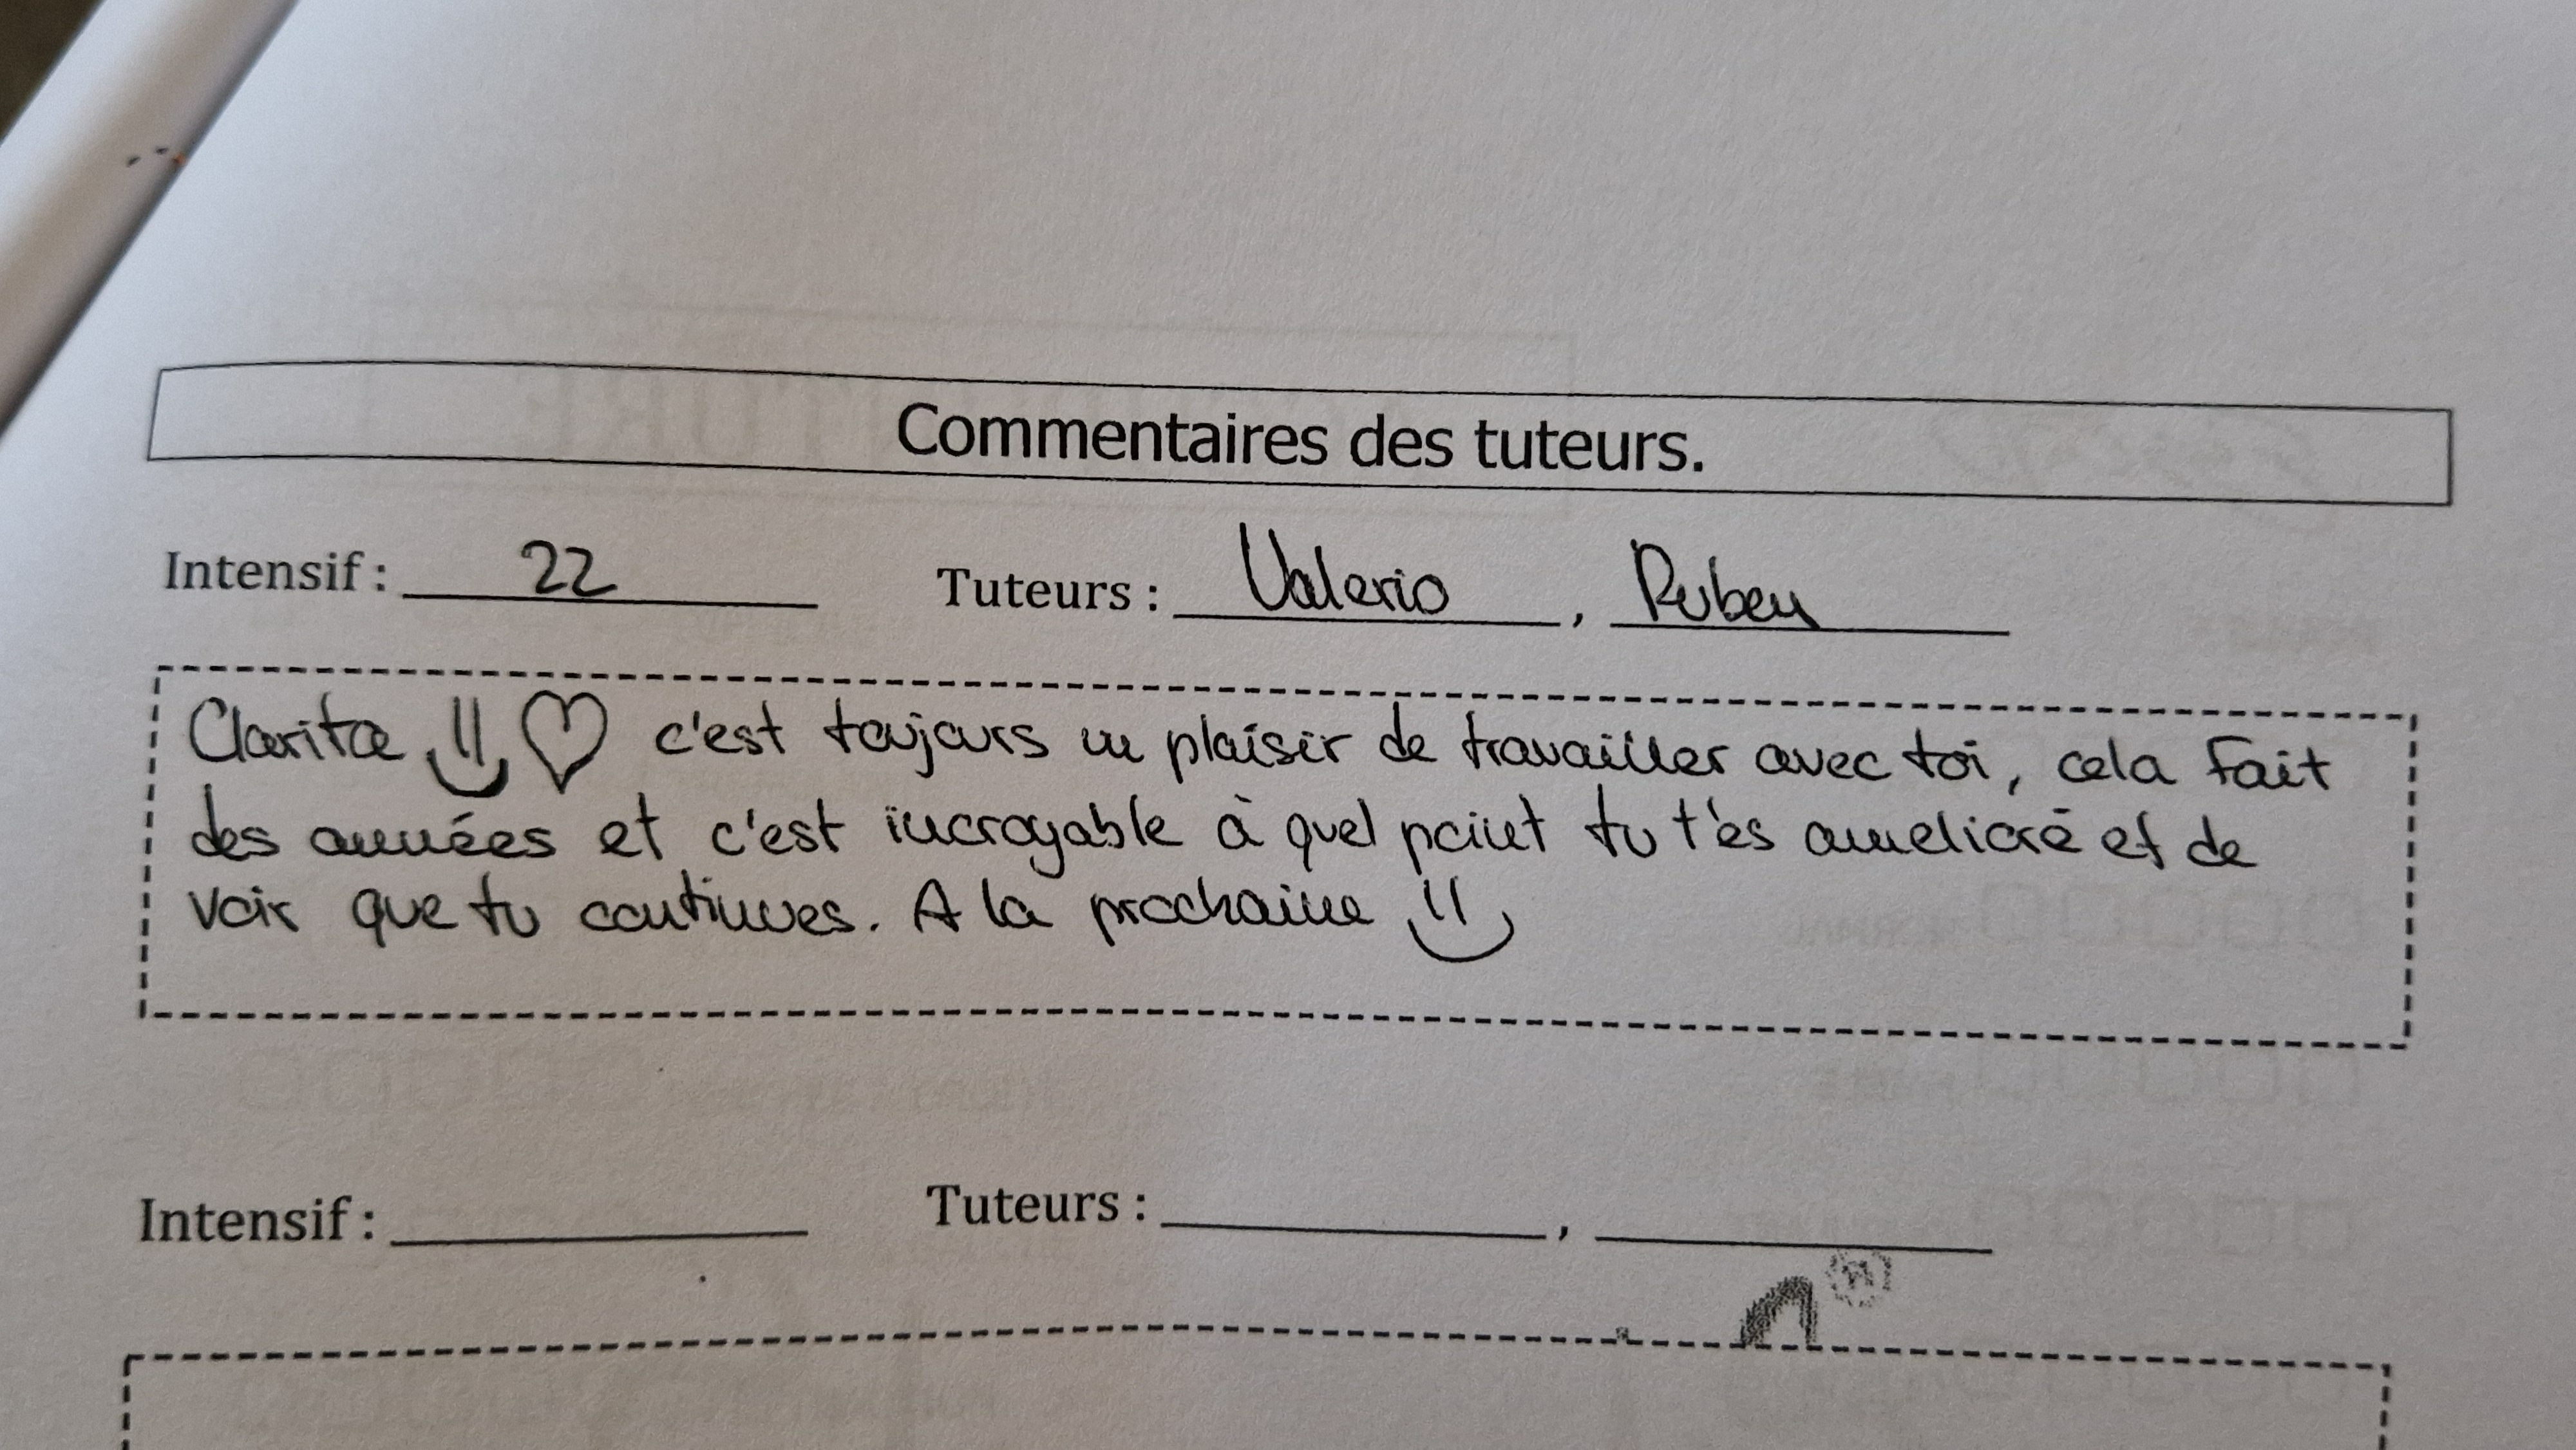 Commentaires des tuteurs.
Intensif : 22 Tuteurs : Valerio, Ruben
Clarita c'est toujours un plaisir de travailler avec toi, cela fait
des années et c'est incroyable à quel point tu t'es amelioré et de
voir que tu continues. A la prochaine
Intensif : Tuteurs : ,